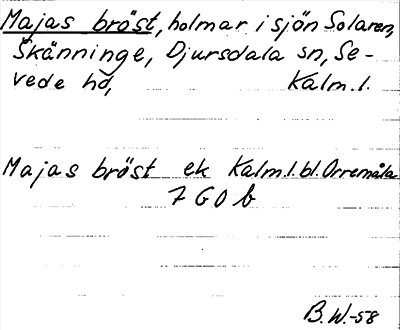 Majas bröst, holmar i sjön Solaren,
Skänninge, Djursdala sn, Se-
vede hd, Kalm. l.
Majas bröst ek Kalm. l. bl. Orremåla
7 G O b
B. W. -58